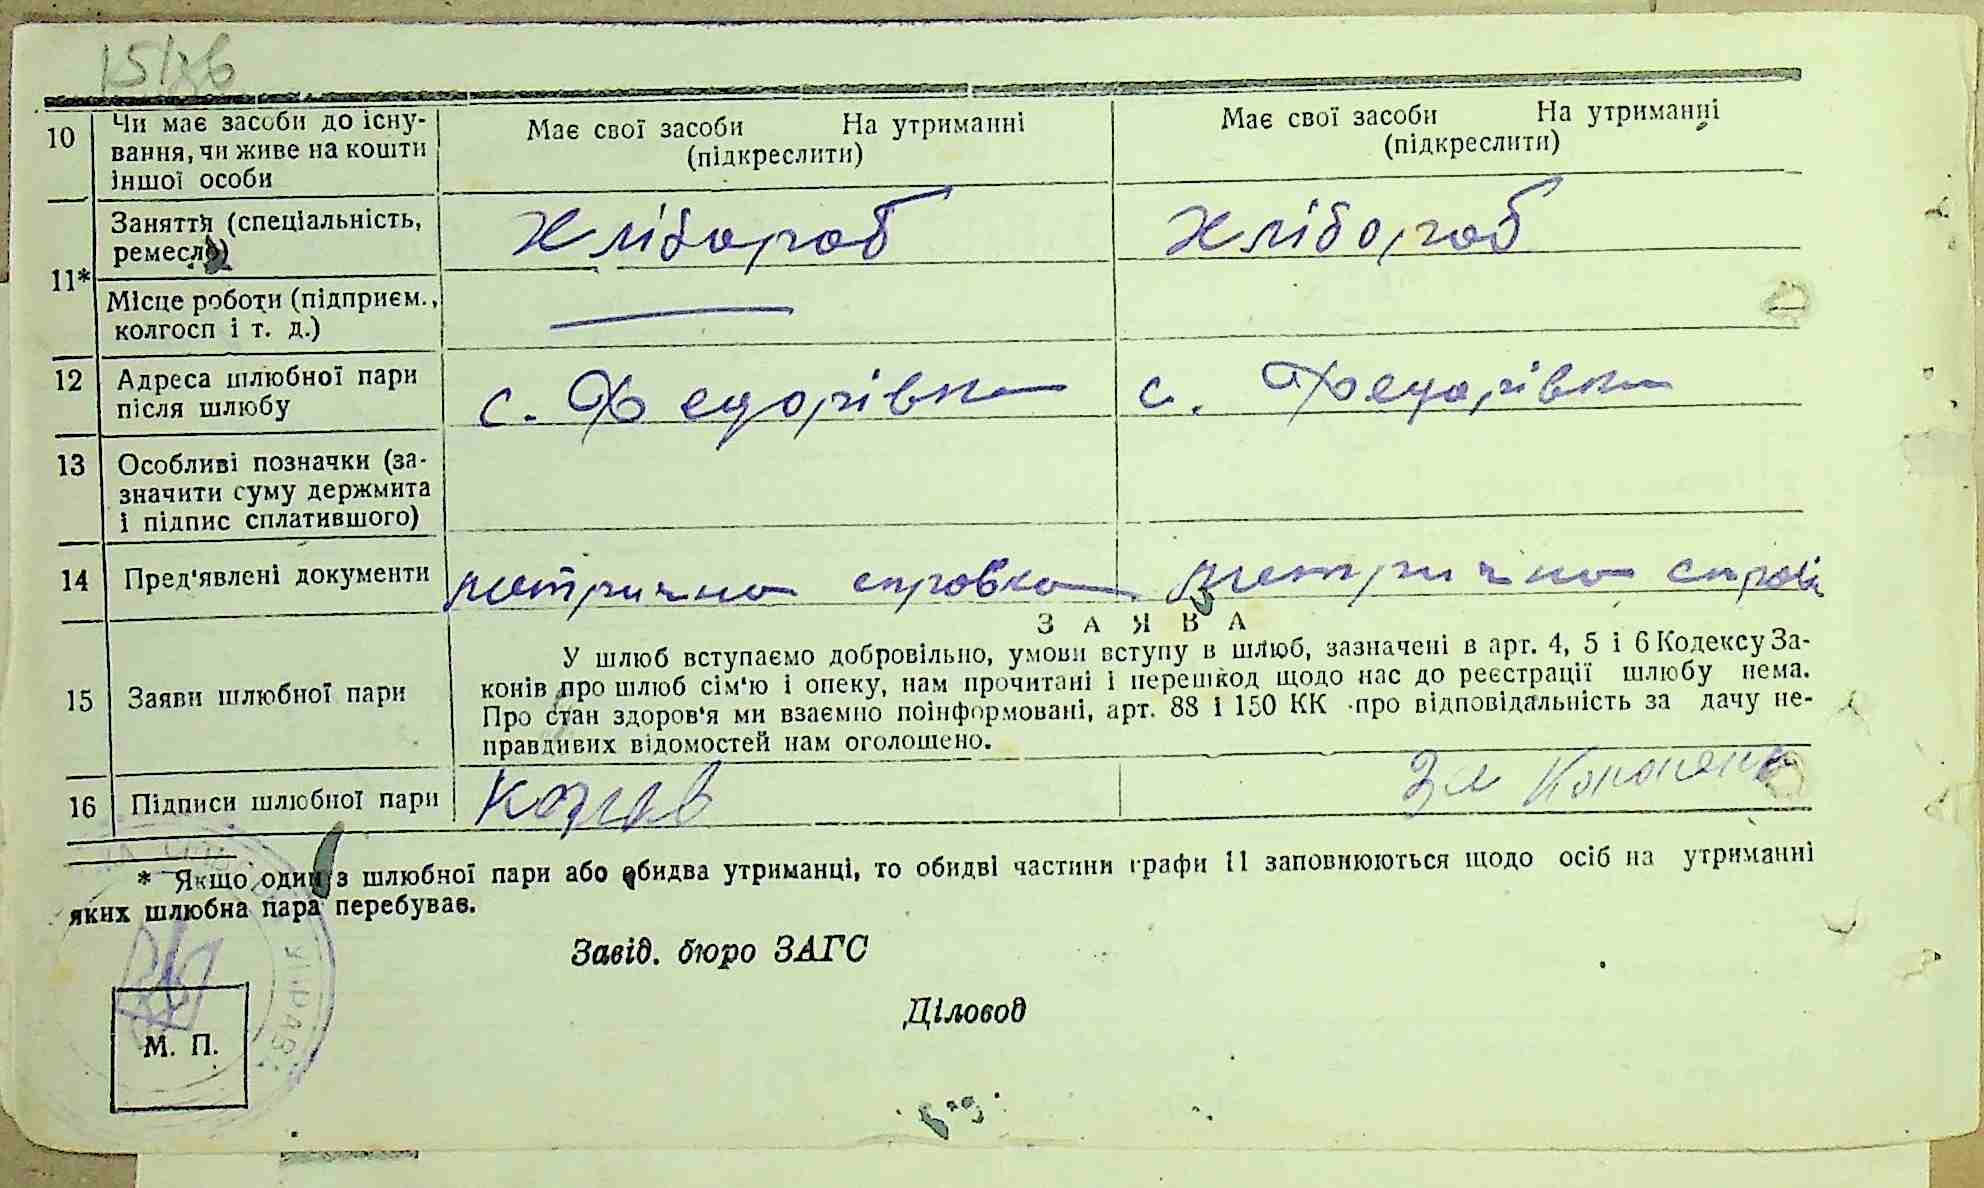 10 Чи має засоби до існу-
вання, чи живе на кошти
іншої особи
Має свої засоби На утриманні
(підкреслити)
Має свої засоби На утриманні
(підкреслити)
11* Заняття (спеціальність,
ремесло)
хлібороб
хлібороб
Місце роботи (підприєм.,
колгосп і т. д.)
12 Адреса шлюбної пари
після шлюбу
с. Федорівка
с. Федорівка
13 Особливі позначки (за-
значити суму держмита
і підпис сплатившого)
14 Пред'явлені документи
метрична справка
метрична справк
15 Заяви шлюбної пари
ЗАЯВА
У шлюб вступаємо добровільно, умови вступу в шлюб, зазначені в арт. 4, 5 і 6 Кодексу За-
конів про шлюб сім'ю і опеку, нам прочитані і перешкод щодо нас до реєстрації шлюбу нема.
Про стан здоров'я ми взаємно поінформовані, арт. 88 і 150 КК про відповідальність за дачу не-
правдивих відомостей нам оголошено.
16 Підписи шлюбної пари
* Якщо один з шлюбної пари або обидва утриманці, то обидві частини графи 11 заповнюються щодо осіб на утриманні
яких шлюбна пара перебував.
Завід. бюро ЗАГС
Діловод
М. П.